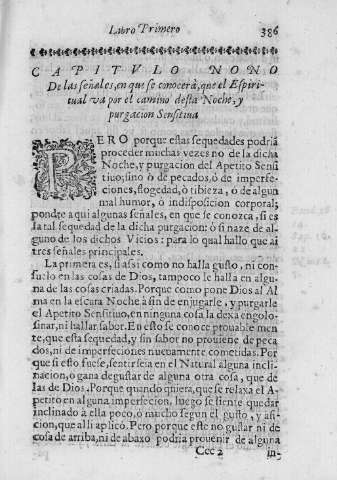 Libro Primero 386
CAPITVLO NONO
De las señales, en que se conocerà, que el Espiri-
tual và por el camino desta Noche, y
purgacion Sensitiua
PERO porque estas sequedades podriã
proceder muchas vezes no de la dicha
Noche, y purgacion del Apetito Sensi
tiuo; sino ò de pecados, ò de imperfe-
ciones, flogedad, ò tibieza, ò de algun
mal humor, ò indisposicion corporal;
pondre aqui algunas señales, en que se conozca, si es
la tal sequedad de la dicha purgacion: ò si naze de al-
guno de los dichos Vicios: para lo qual hallo que ai
tres señales principales.
La primera es, si assi como no halla gusto, ni con-
suelo en las cosas de Dios, tampoco le halla en algu-
na de las cosas criadas. Porque como pone Dios al Al
ma en la escura Noche à fin de enjugarle, y purgarle
el Apetito Sensitiuo, en ninguna cosa la dexa engolo-
sinar, ni hallar sabor. En esto se conoce prouable men
te, que esta sequedad, y sin sabor no prouiene de peca
dos, ni de imperfeciones nueuamente cometidas. Por
que si esto fuese, sentirseia en el Natural alguna incli-
nacion, ò gana de gustar de alguna otra cosa, que de
las de Dios. Porque quando quiera, que se relaxa el A-
petito en alguna imperfecion, luego se siente quedar
inclinado à ella poco, ò mucho segun el gusto, y afi-
cion, que alli aplicò. Pero porque este no gustar ni de
cosa de arriba, ni de abaxo podria prouenir de alguna
Ccc 2 in-